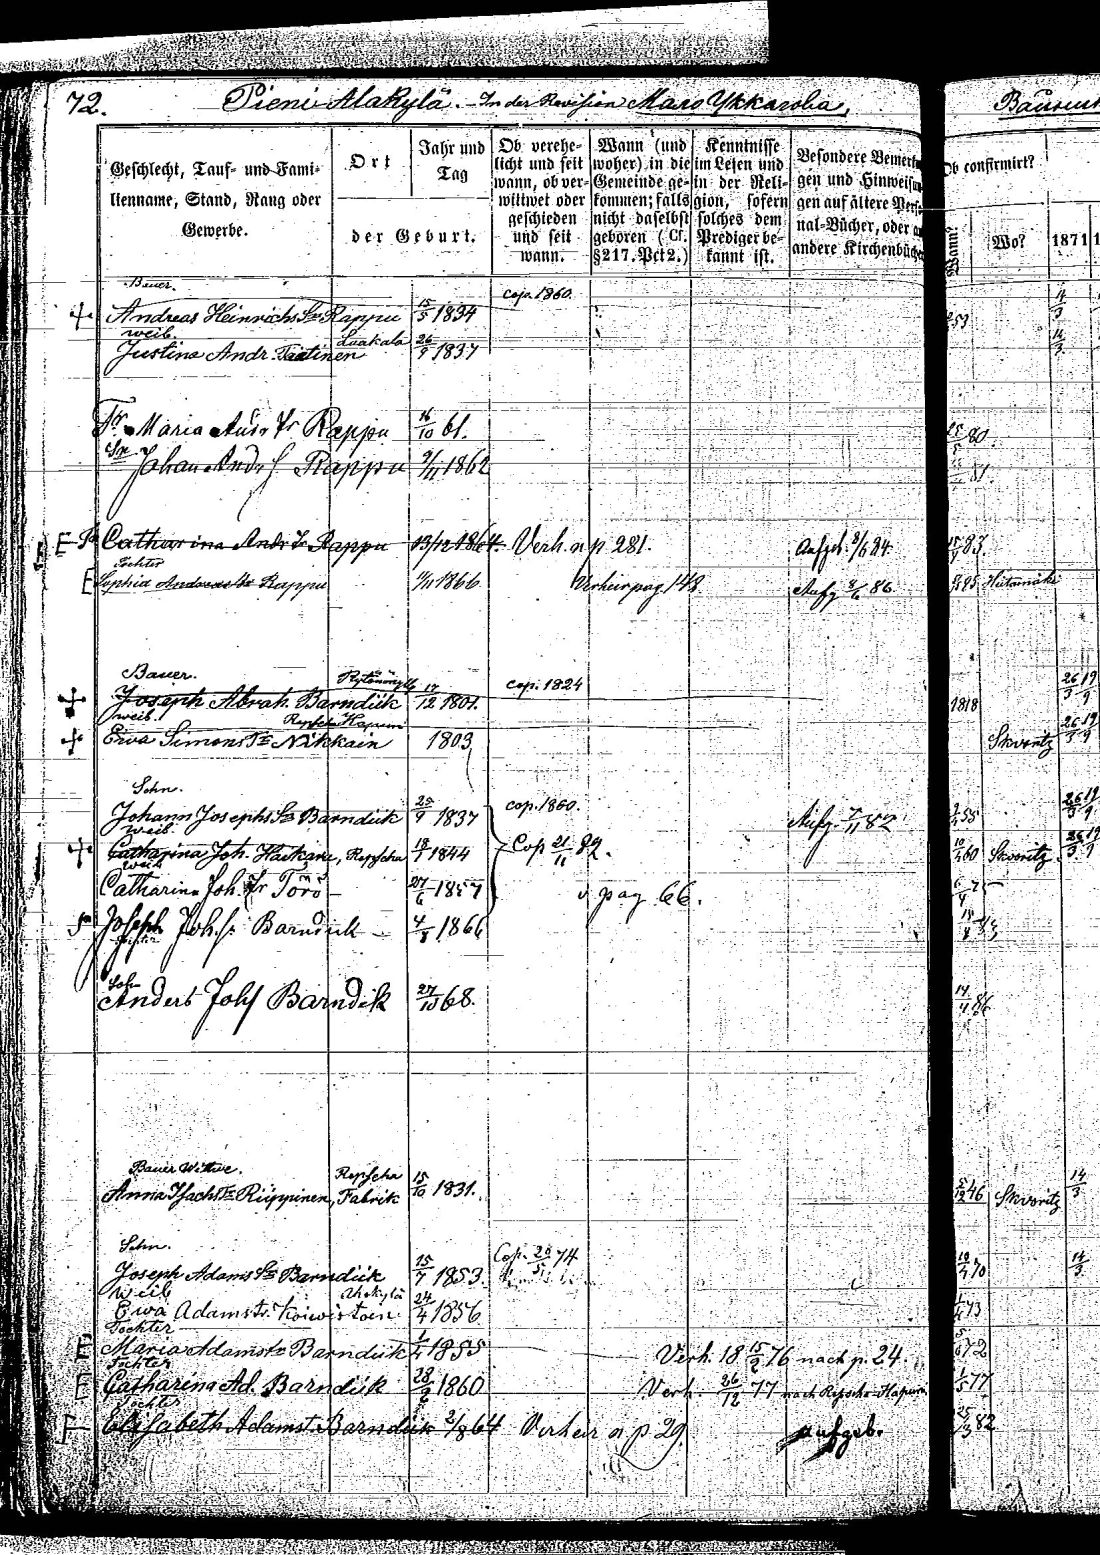 72. Pieni Alakylä. - In der Revision Maro Ykkaroba,
Geschlecht, Tauf- und Fami-
lienname, Stand, Rang oder
Gewerbe.
Ort
Jahr und
Tag
der Geburt.
Ob verehe-
licht und seit
wann, ob ver-
wittwet oder
geschieden
und seit
wann.
Wann (und
woher) in die
Gemeinde ge-
kommen; falls
nicht daselbst
geboren (Cf.
§217. Pct 2.)
Kenntnisse
im Lesen und
in der Reli-
gion, sofern
solches dem
Prediger be-
kannt ist.
Besondere Bemerk
gen und Hinweisun
gen auf ältere Pers
nal-Bücher, oder a
andere Kirchenbüch
Ob confirmirt?
Wann?
Wo?
1871
Bauer. cop. 1860.
Andreas Heinrichs Sn Rappu 15/5 1834 59 14/3
weib Laakala
Justina Andr. Taatinen 26/9 1837 14/3
Tr. Maria Andr Tr Rappu 16/10 61. 80
Sn
Johan Andr S. Rappu 9/11 1862 81
E Catharina Andr Tr Rappu 13/12 1864. Verh. n p 281. Aufgeb. 3/6 84 83
Tochter
E Sophia Andreas Tr Rappu 1866 Verheir pag. 148 Aufg 85
Bauer. cop. 1824
Joseph Abrah. Barndük 17/12 1801. 1818 26/3 19/9
weib Repscha Hapuni
Ewa Simons Tr Nikkain 1803 Skworitz 26/3 19/9
Sohn. cop. 1860.
Johann Josephs Sn Barndük 1837 Aufg. 7/11 82 55 26/3 19/9
weib
Catharina Joh. Haikane, Repscha 18/1 1844 Cop 21/11 82. 60 Skworitz 26/3 19/9
weib
Catharina Joh. Tr Törö 27/6 1857 v pag 66. 75
Sn Joseph Joh. S. Barndük 4/8 1866
Sohn
Anders Johs Barndük 27/10 68. 14/4 86
Bauer Wittwe. Repscha
Anna Isachs Tr Rüppinen, Fabrik 15/10 1831. 5/12 46 Skworitz 14/3
Sohn. Cop. 26/5 74
Joseph Adams Sn Barndük 15/7 1853. 70 14/3
weib
Ewa Adamstr. Koiwistoin 24/4 1856 73
Tochter
E Maria Adamstr Barndük 1/4 1855 Verh. 18 15/2 76 nach p. 24. 72
Tochter
E Catharina Ad. Barndük 28/2 1860 Verh. 26/12 77 nach Repscha-Hapuni 77
Tochter
Elisabeth Adamst. Barndük 2/8 64 Verheir n p 29. aufgeb. 25/3 82